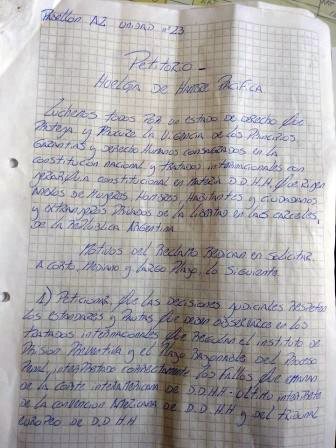 PABELLON A2 UNIDAD nº 23
Petitorio -
HUELGA DE HAMBRE PACIFICA
Luchemos todos por un estado de derecho que
proteja y procure la vigencia de los principios
garantias y derecho humanos consagrados en la
constitución nacional y tratados internacionales con
jerarquia constitucional en materia D.D.H.H. que rigen
de mujeres, hombres, habitantes y ciudadanos
y extranjeros privados de la libertad en las carceles,
de la Republica Argentina.
Motivos del reclamo radican en solicitar
a corto, mediano y largo plazo, lo siguiente
1) Peticionar, que las decisiones judiciales respeten
los estandares y pautas que deben observarse en los
tratados internacionales que regulan el instituto de
prision preventiva y el plazo razonable del proceso
penal, interpretado correctamente los fallos que emanan
de la corte interamericana de D.D.H.H - ultimo interprete
de la convencion americana de D.D.H.H y del tribunal
europeo de D.D.H.H